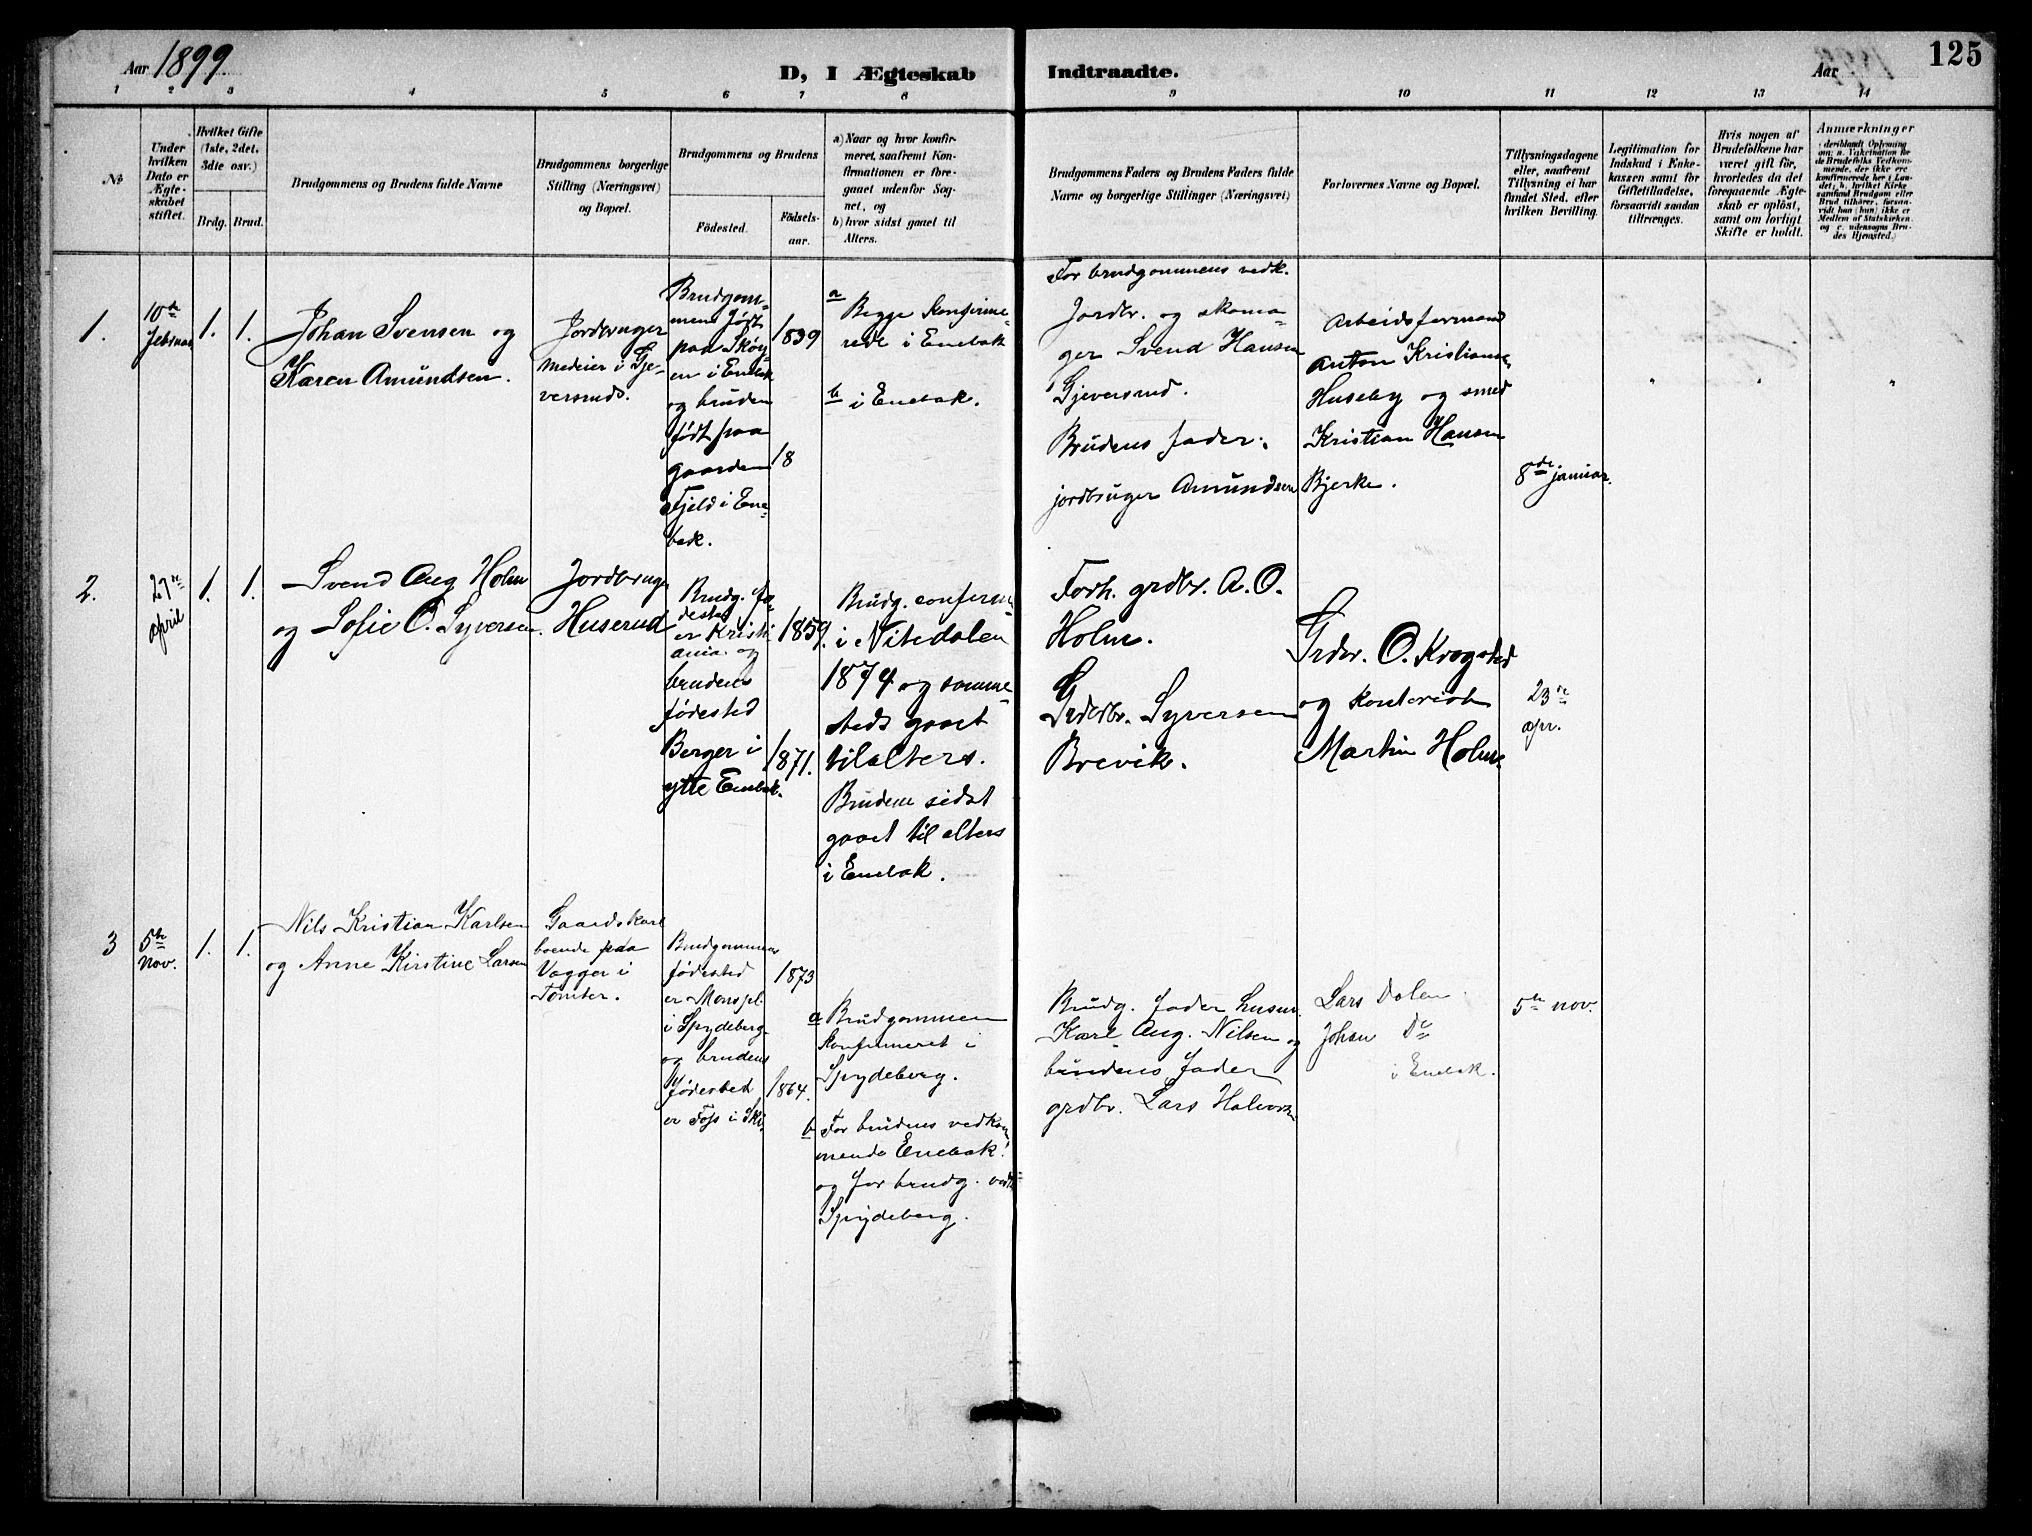 Aar 1899
D, I Ægteskab Indtraadte.
Aar
125
1 2 3 4 5 6 7 8 9 10 11 12 13 14
№
Under
hvilken
Dato er
Ægte-
skabet
stiftet.
Hvilket Gifte
(1ste, 2det,
3die osv.)
Brdg. Brud.
Brudgommens og Brudens fulde Navne
Brudgommens borgerlige
Stilling (Næringsvei)
og Bopæl.
Brudgommens og Brudens
Födested.
Födsels-
aar.
a) Naar og hvor konfir-
meret, saafremt Kon-
firmationen er fore-
gaaet udenfor Sog-
net, og
b) hvor sidst gaaet til
Alters.
Brudgommens Faders og Brudens Faders fulde
Navne og borgerlige Stillinger (Næringsvei)
Forlovernes Navne og Bopæl.
Tillysningsdagene
eller, saafremt
Tillysning ei har
fundet Sted, efter
hvilken Bevilling.
Legitimation for
Indskud i Enke-
kassen samt for
Giftetilladelse,
forsaavidt saadan
tiltrænges.
Hvis nogen af
Brudefolkene har
været gift för,
hvorledes da det
foregaaende Ægte-
skab er oplöst,
samt om lovligt
Skifte er holdt.
Anmærkninger
(deriblandt Oplysning
om: a. Vakcination for
de Brudefolks Vedkom-
mende, der ikke ere
konfirmerede her i Lan-
det; b. hvilket Kirke-
samfund Brudgom eller
Brud tilhörer, forsaa-
vidt han (hun) ikke er
Medlem af Statskirken
og c. udensogns Bru-
des Hjemsted.)
1.
10de
februar
1. 1.
Johan Svensen og
Karen Amundsen.
Jordbruger
medeier i Gje-
versrud.
Brudgom-
mens født
paa Skøy-
en i Enebak
og bruden
født paa
gaarden
Fjeld i Ene-
bak.
1839
18
a
Begge konfirme-
rede i Enebak
b i Enebak.
For brudgommens vedk.
Jordbr. og skoma-
ger Svend Hansen
Gjeversrud.
Brudens fader:
jordbruger Amundsen
Arbeidsformand
Anton Kristiansen
Huseby og smed
Kristian Hansen
Bjerke.
8de januar.
2.
27de
april
1. 1.
Svend Aug Holm
og Sofie O. Syversen.
Jordbruger
Huserud
Brudg. fø-
desteд
er Kristi
ania. og
brudens
fødested
Berger i
ytte Enebak.
1859.
1871.
Brudg. confirm.
i Nitedalen
1874 og samme-
steds gaaet
til alters.
Brudene sidst
gaaet til alters
i Enebak.
Forh. grdbr. A. O.
Holm.
Grdbr. Syversen
Brevik.
Grdbr. O. Krogsted
og kontorist
Martin Holm.
23de
apr.
3
5te
nov.
1. 1.
Nils Kristian Karlsen
og Anne Kirstine Larsen
Gaardskarl
boende paa
Vagger i
Tomter.
Brudgommens
fødested
er Monspl.
i Spydeberg.
og brudens
fødested
er Foss i Ski.
1873
1864.
a Brudgommen
konfirmeret i
Spydeberg.
b For brudens vedkom
mende Enebak.
og for brudg. vedk
Spydeberg.
Brudg. fader husm.
Karl Aug. Nilsen og
brudens fader
grdbr. Lars Halvorsen
Lars Dalen.
Johan Do
i Enebak.
5te nov.